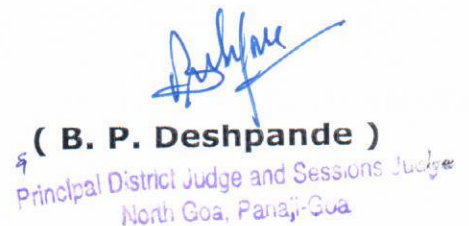 ( B. P. Deshpande )
Principal District Judge and Sessions Judge
North Goa, Panaji-Goa